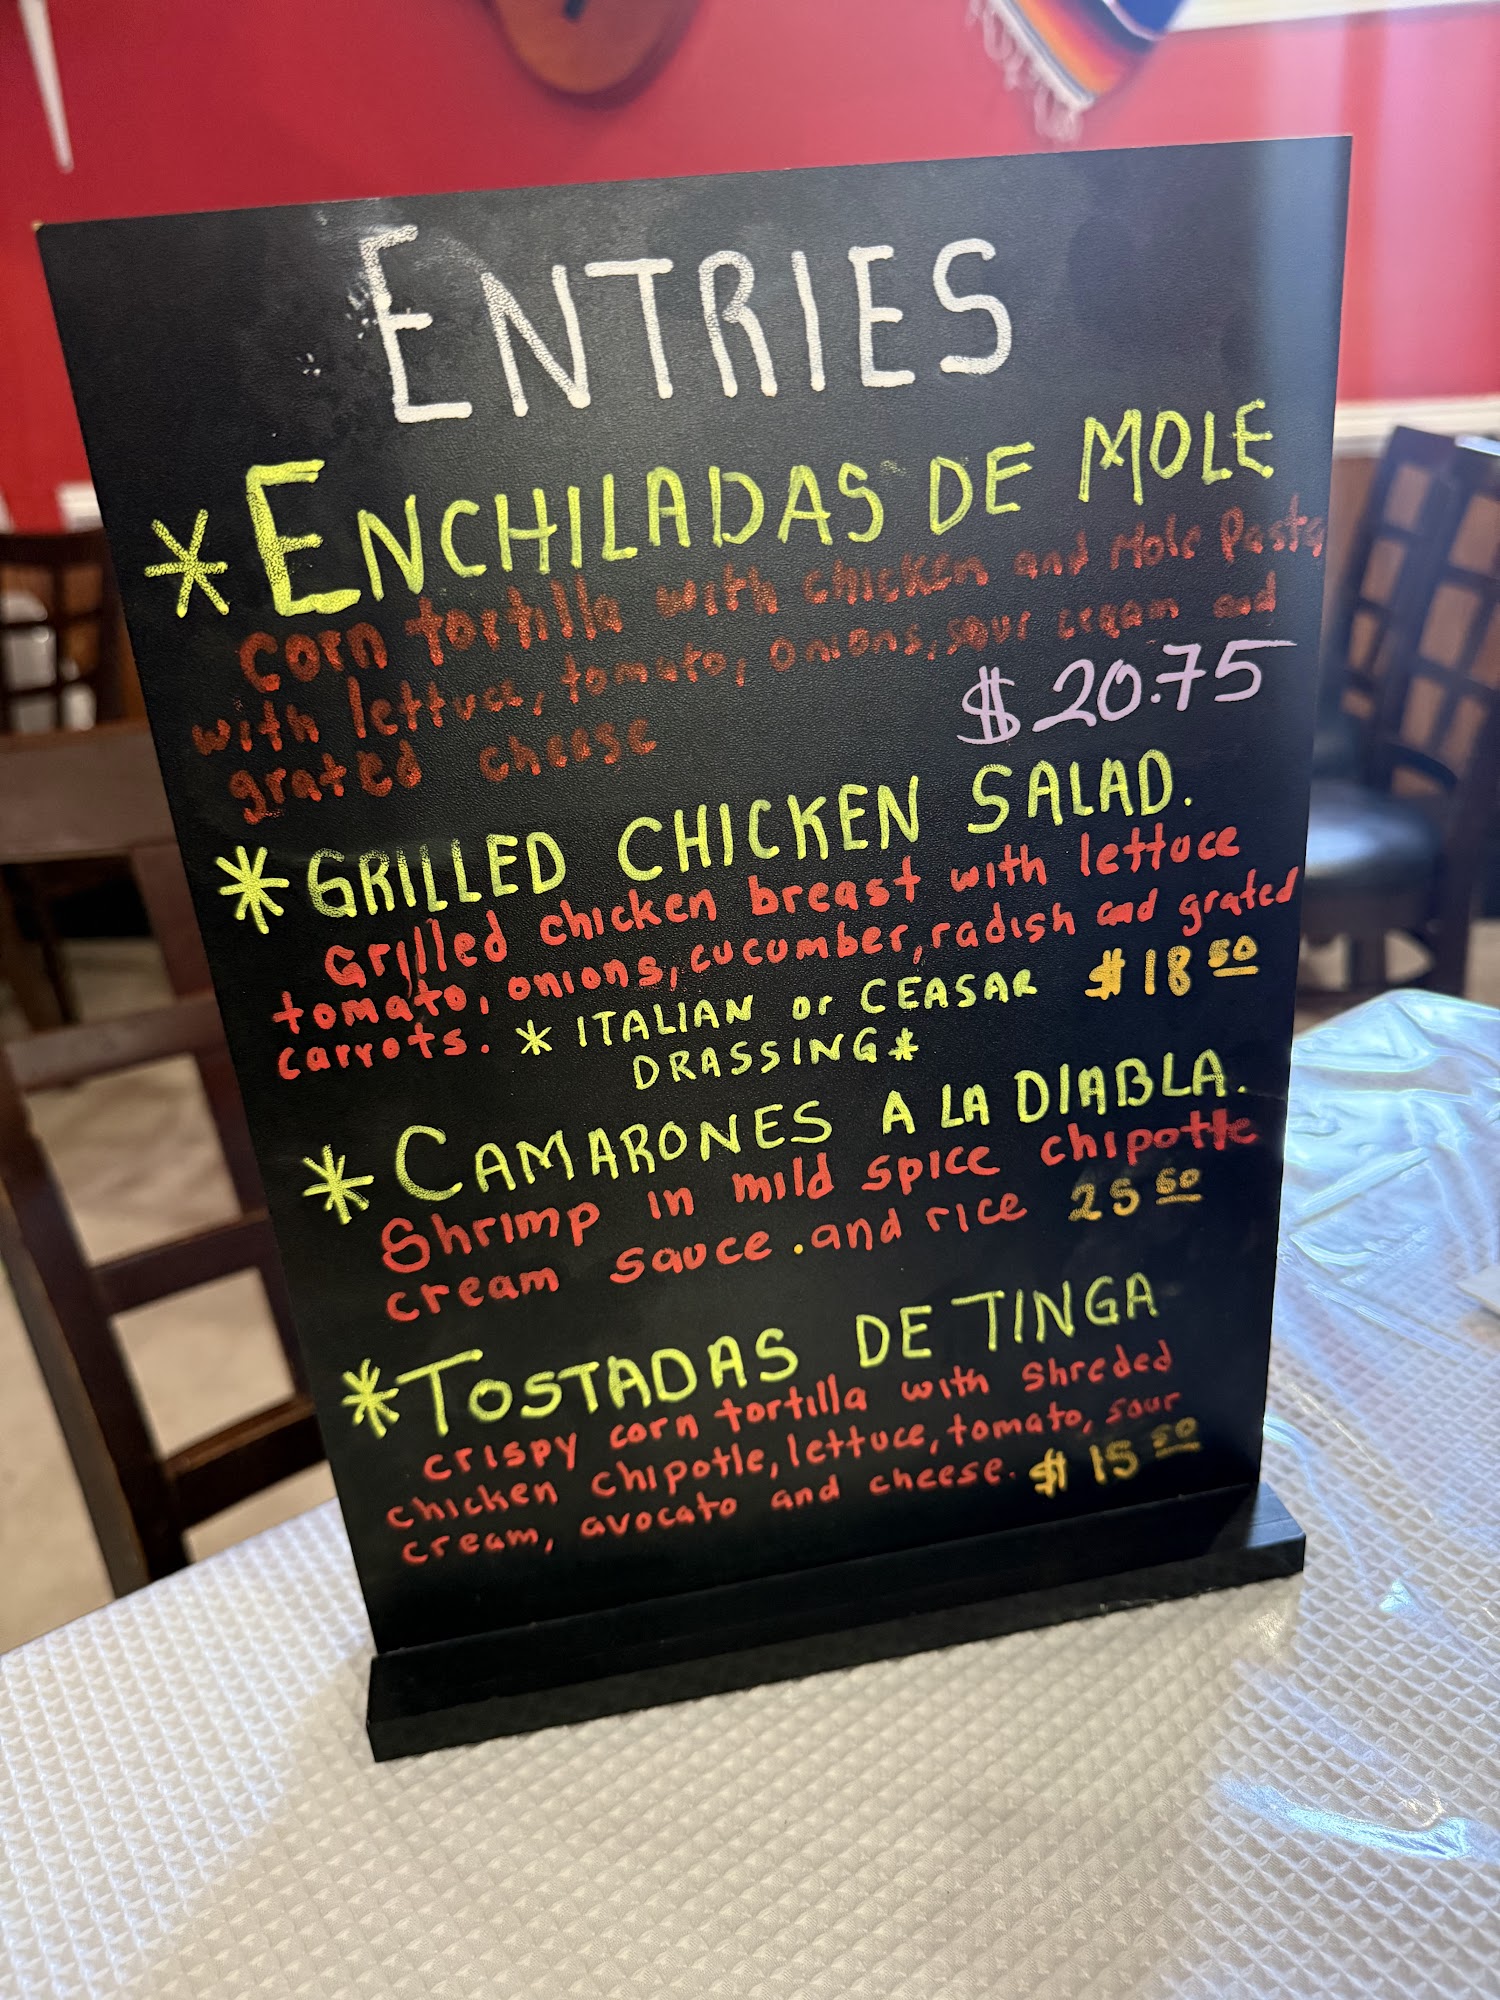 ENTRIES
* ENCHILADAS DE MOLE
corn tortilla with chicken and Mole Pasta
with lettuce, tomato, onions, sour cream and
grated cheese
$20.75
* GRILLED CHICKEN SALAD.
Grilled chicken breast with lettuce
tomato, onions, cucumber, radish and grated
carrots. * ITALIAN or CEASAR $18 50
DRASSING *
* CAMARONES A LA DIABLA.
Shrimp in mild spice chipotle
cream sauce . and rice 25 50
* TOSTADAS DE TINGA
crispy corn tortilla with Shreded
chicken chipotle, lettuce, tomato, sour
cream, avocato and cheese. $15 50